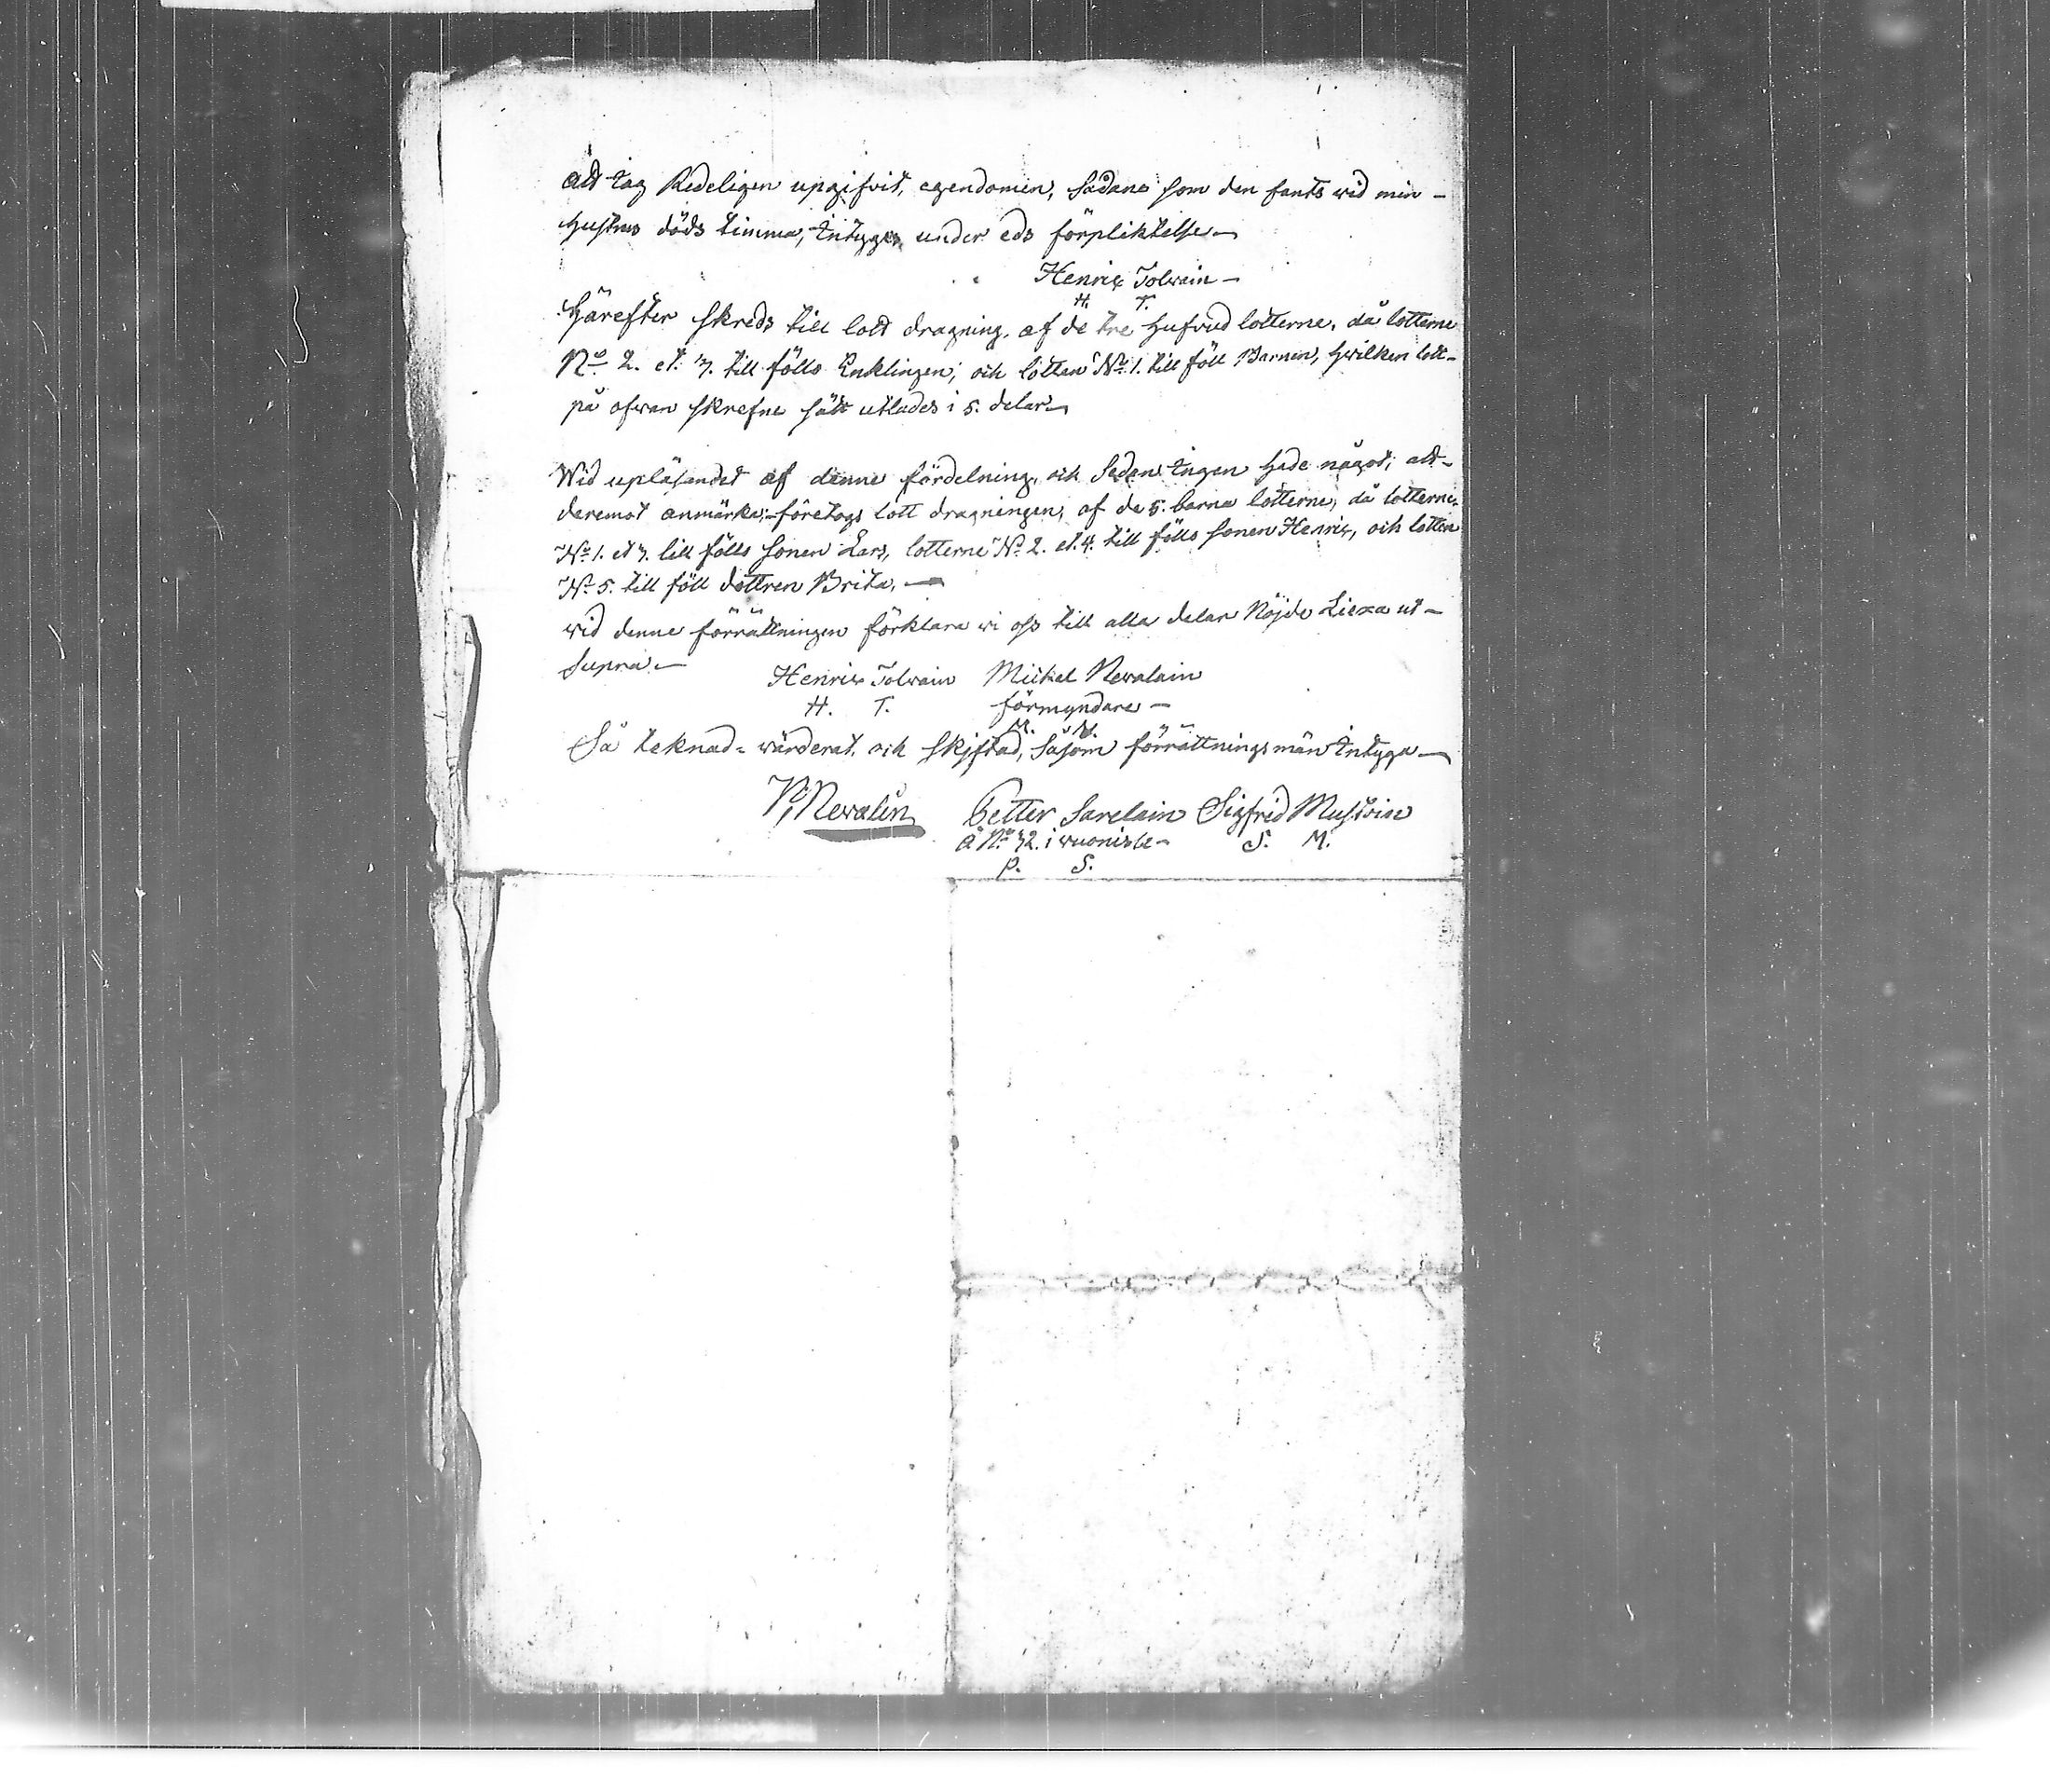 att iag Redeligen upgifvit, egendomen, sådane som den fants wid min -
hustrus döds timma, intyges under eds förpliktelse -
Henric Tolvain -
H. T.
Härefter skreds till lott dragning, af de tre hufvud lotterne, då lotterne
No 2. et. 3. till fölls Enklingen; och lotten No 1. till föll Barnen, hwilken lott -
på ofvan skrefne sätt utlades i 5. delar -
Wid upläsandet af denne fördelning, och sedan ingen hade något, att -
deremot anmärka; företogs lott dragningen, af de 5. barna lotterne, då lotterne
No 1. et 3. till fölls sonen Lars, lotterne No 2. et. 4. till fölls sonen Henric, och lotten
No 5. till föll dottren Brita. -
wid denne förrättningen förklara wi oss till alla delar Nöjde Liexa ut -
supra -
Henric Tolvain Mickel Nevalain
H. T. förmyndare -
M. N.
Så teknad = wärderat och skiftad, såsom förrättnings män intyga -
P. Nevalin Petter Sarelain Sigfrid Mustoin
å No 32. i wuonisle - S. M.
P. S.